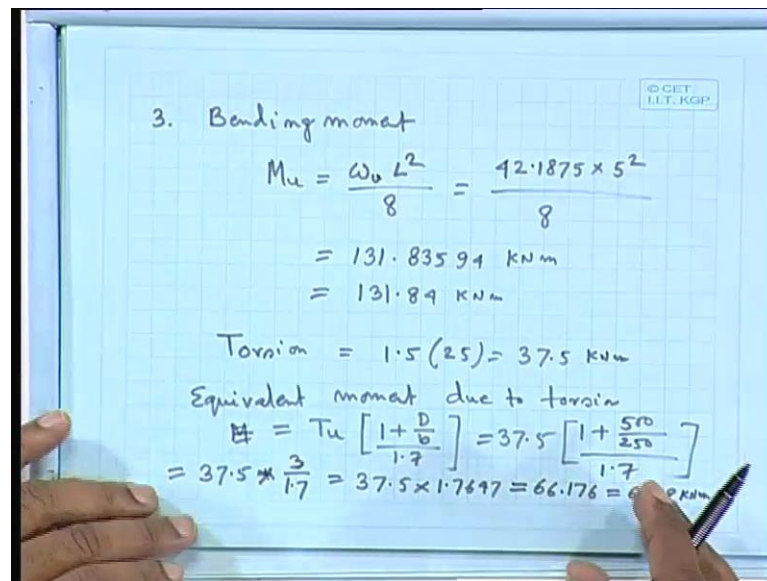 © CET
I.I.T. KGP
3. Bending moment
Mu = ωu L² / 8 = 42.1875 × 5² / 8
= 131.83594 KNm
= 131.84 KNm
Torsion = 1.5 (25) = 37.5 KNm
Equivalent moment due to torsin
= Tu [ 1 + D/b / 1.7 ] = 37.5 [ 1 + 500/250 / 1.7 ]
= 37.5 * 3/1.7 = 37.5 × 1.7647 = 66.176 = 6 KNm